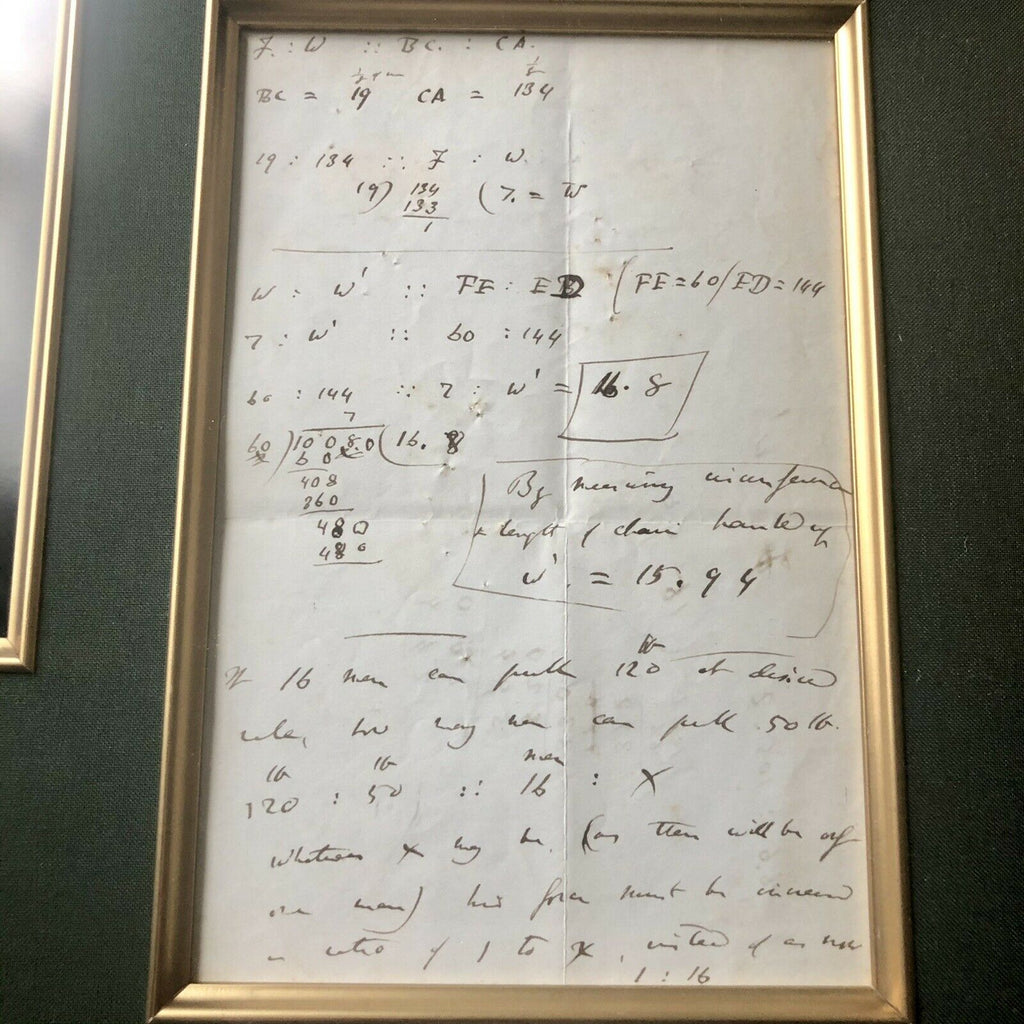 7 : W :: BC. : CA.
BC = 19 CA = 134
19 : 134 :: 7 : W.
19) 134 (7. = W
133
1
W : W' :: FE : ED (FE = 60 / ED = 144
7 : W' :: 60 : 144
60 : 144 :: 7 : W' = 16.8
7
60) 10080 (16.8
60
408
360
480
480
By measuring circumference
& length of chain hauled up
W' = 15.94
If 16 men can pull 120 lb at desired
rate, how many men can pull 50 lb.
lb lb men
120 : 50 :: 16 : X
Whatever x may be, (as there will be only
one man) his force must be increased
in ratio of 1 to x, instead of as now
1 : 16